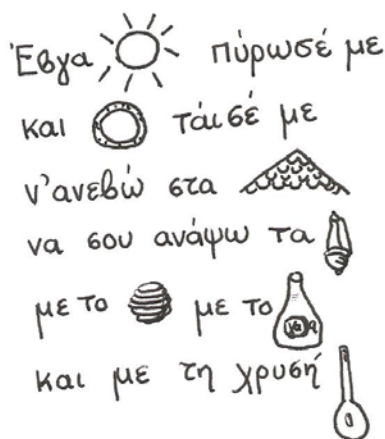 Έβγα πύρωσέ με
και τάισέ με
ν'ανεβώ στα
να σου ανάψω τα
με το με το
και με τη χρυσή